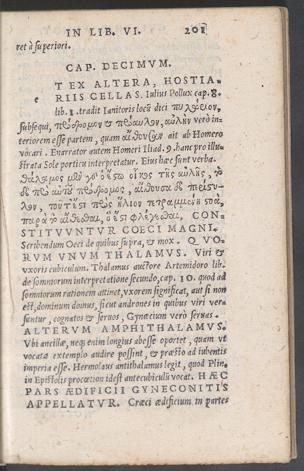 IN LIB. VI. 201
ret à superiori.
CAP. DECIMVM.
T EX ALTERA, HOSTIA-
RIIS CELLAS. Iulius Pollux cap. 8.
lib. 1. tradit Ianitoris locũ dici πυλώειον,
subsequi, πρόδρομον & προαύλιον, αὐλὴν verò in-
teriorem esse partem, quam αἴθουσαν ait ab Homero
vocari. Enarrator autem Homeri Iliad. 9. hanc pro illu-
strata Sole porticu interpretatur. Eius hæc sunt verba.
θάλαμος μὲν γὰρ ὁ ἔσω οἶκος τῆς αὐλῆς, τὸ
δὲ πρὸ αὐτοῦ πρόδομος, αἴθουσα δὲ περίστυ-
λον, τουτέστι πρὸς ἥλιον
παρὰ τὸ αἴθεσθαι, ὅ ἐστι φλέγεσθαι, CON-
STITVVNTVR COECI MAGNI.
Scribendum Oeci de quibus supra, & mox. QVO-
RVM VNVM THALAMVS. Viri &
vxoris cubiculum. Thalamus auctore Artemidoro lib.
de somniorum interpretatione secundo, cap. 10. quod ad
somniorum rationem attinet, vxorem significat, aut si non
est, dominum domus, sicut andrones in quibus viri ver-
santur, cognatos & seruos, Gynæcium verò seruas.
ALTERVM AMPHITHALAMVS.
Vbi ancillæ, neq; enim longius abesse oportet, quam vt
vocatæ extemplo audire possint, & præsto ad iubentis
imperia esse. Hermolaus antithalamus legit, quod Plin.
in Epistolis procœtion idest antecubiculũ vocat. HÆC
PARS ÆDIFICII GYNECONITIS
APPELLATVR. Græci ædificium in partes